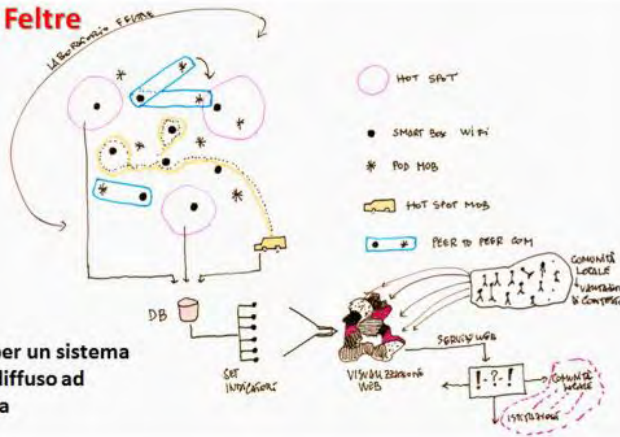 Feltre
LABORATORIO FELTRE
HOT SPOT
SMART BOX WIFI
POD MOB
HOT SPOT MOB
PEER TO PEER COM
COMUNITÀ
LOCALE
DB
SET
INDICATORI
VISUALIZZAZIONE
WEB
SERVIZI WEB
!-?-!
COMUNITÀ
LOCALE
ISTITUZIONI
per un sistema
diffuso ad
a